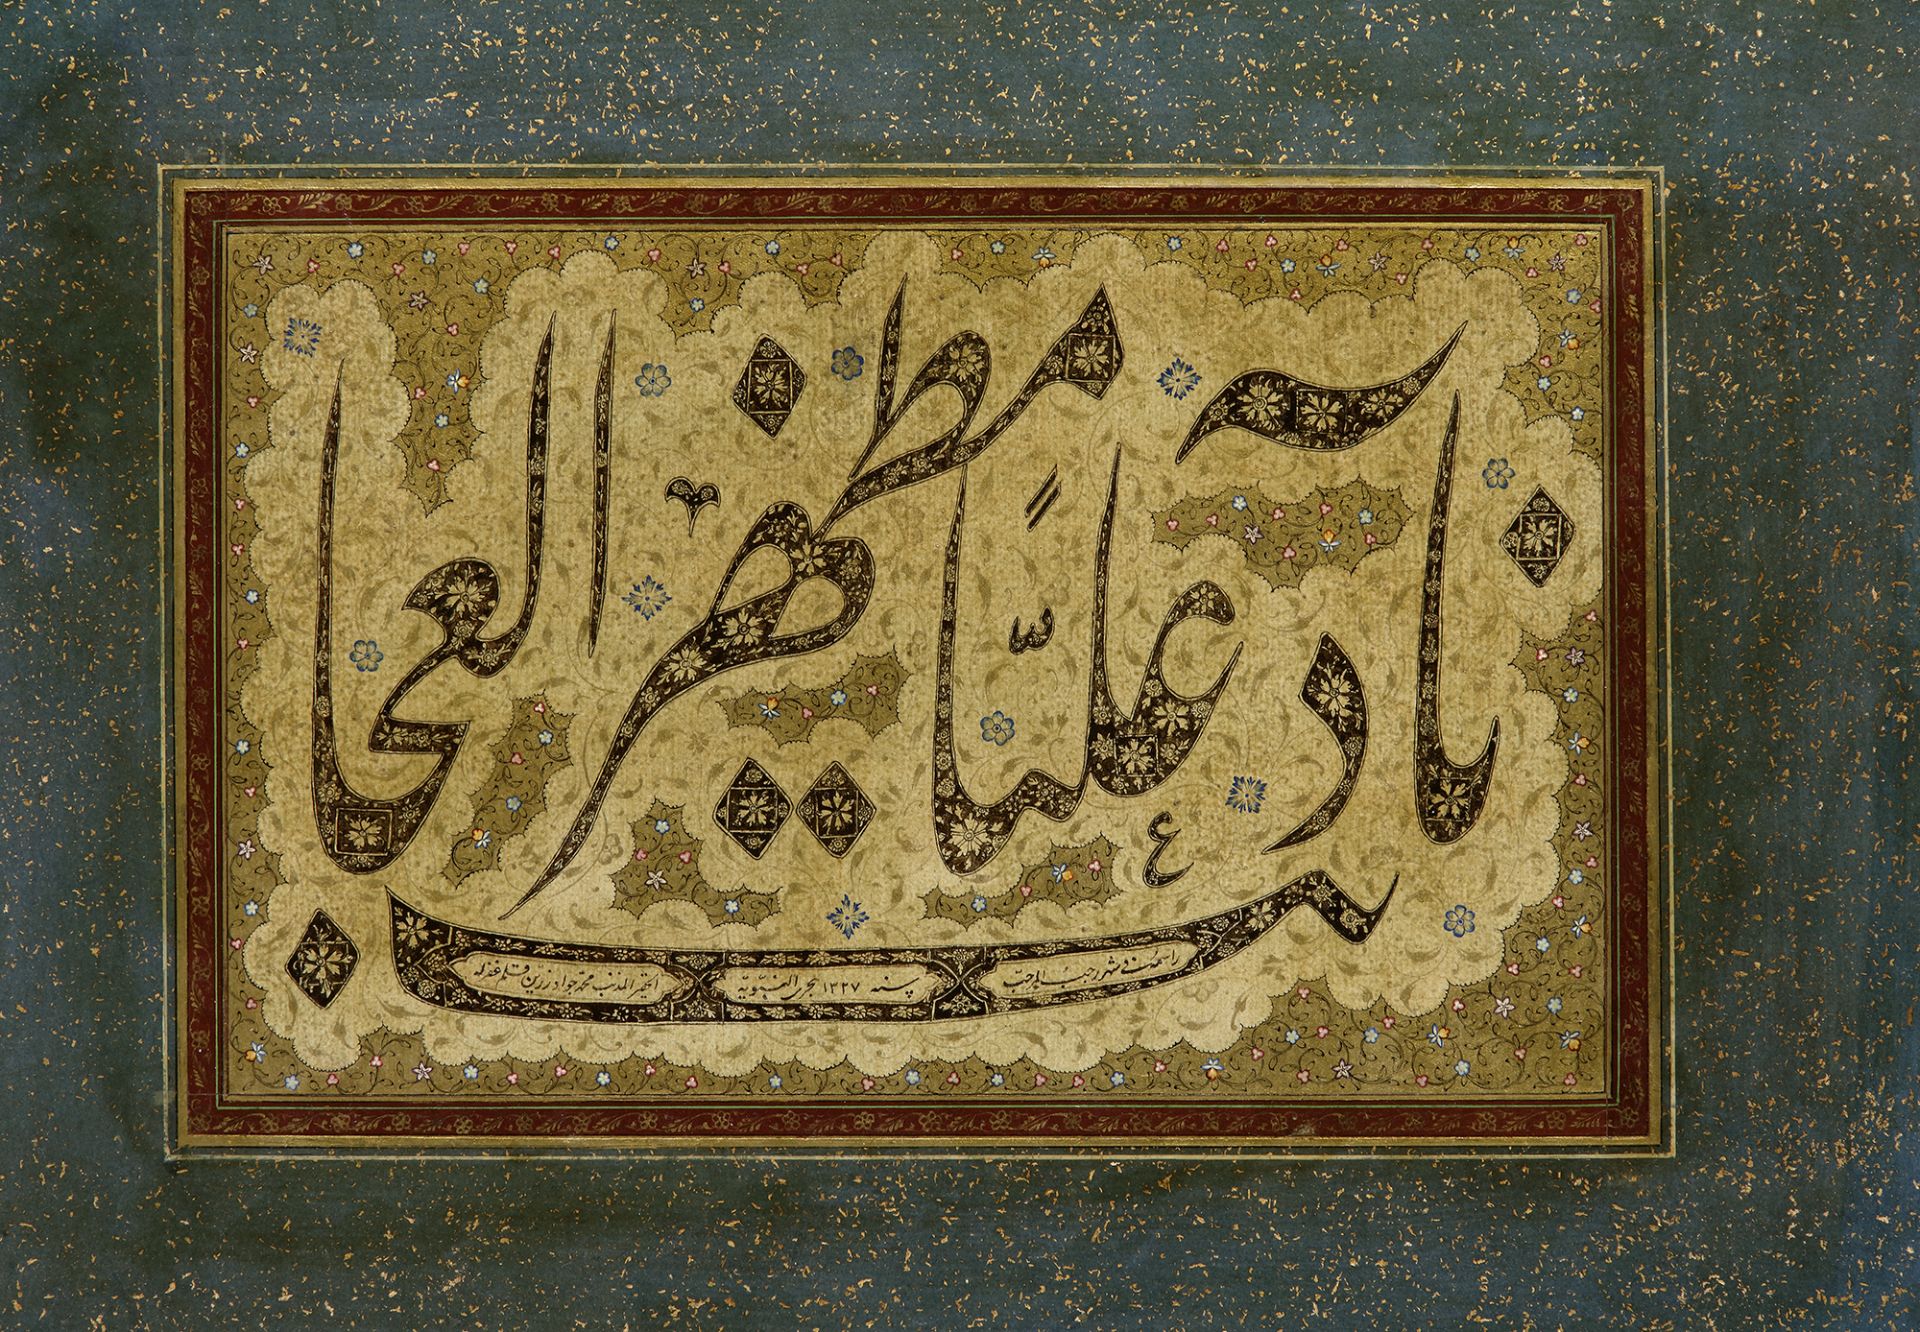 ناد علیًّا مظهر العجائب
ع
راسمه فی شهر رجب المرجب
سنه ۱۳۲۷ هجری النبویّه
الحقیر المذنب محمد جواد زرین قلم غفر له